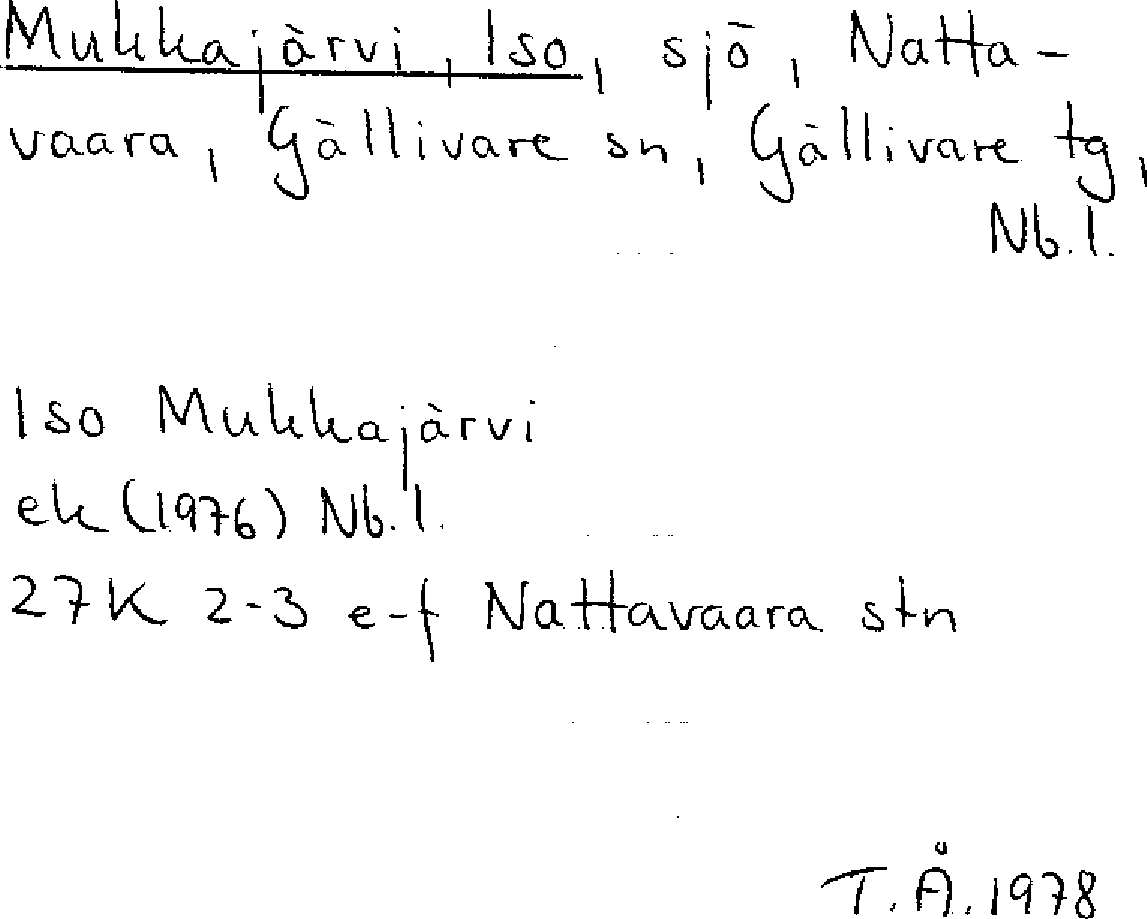 Mukkajärvi, Iso, sjö, Natta-
vaara, Gällivare sn, Gällivare tg,
Nb.l.
Iso Mukkajärvi
ek (1976) Nb.l.
27K 2-3 e-f Nattavaara stn
T.Å.1978